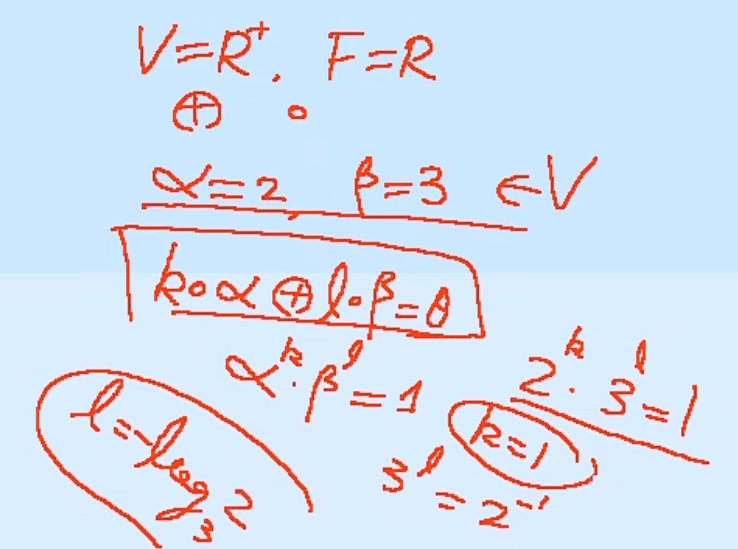 V=R⁺. F=R
⊕ ∘
α=2 β=3 ∈V
k∘α⊕l∘β=θ
αᵏ·βˡ=1
2ᵏ·3ˡ=1
k=1
3ˡ=2⁻¹
l=-log₃2